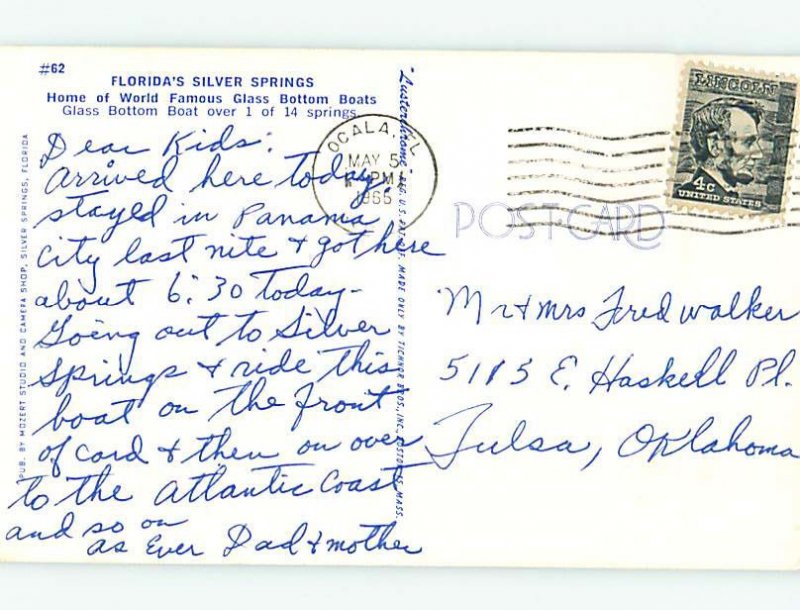 #62
FLORIDA'S SILVER SPRINGS
Home of World Famous Glass Bottom Boats
Glass Bottom Boat over 1 of 14 springs
Dear Kids:
Arrived here today,
stayed in Panama
City last nite & got here
about 6:30 today-
Going out to Silver
Springs & ride this
boat on the front
of card & then on over
to the Atlantic Coast
and so on
as Ever Dad & mother
PUB. BY MOZERT STUDIO AND CAMERA SHOP, SILVER SPRINGS, FLORIDA
"Lusterchrome" REG. U.S. PAT. OFF. MADE ONLY BY TICHNOR BROS., INC., BOSTON, MASS.
OCALA, FL
MAY 5
PM
1966
LINCOLN
4c
UNITED STATES
POST CARD
Mr & Mrs Fred walker
5185 E. Haskell Pl.
Tulsa, Oklahoma